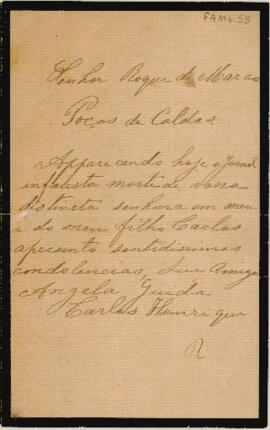 FAM6.55
Senhor Roque de Marco
Poços de Caldas
Apparecendo hoje o Jornal
infausta morte de vossa
distincta senhora em meu
i do meu filho Carlos
apresento sentidissimas
condolencias, Sua Amiga
Angela Guida
Carlos Henrique